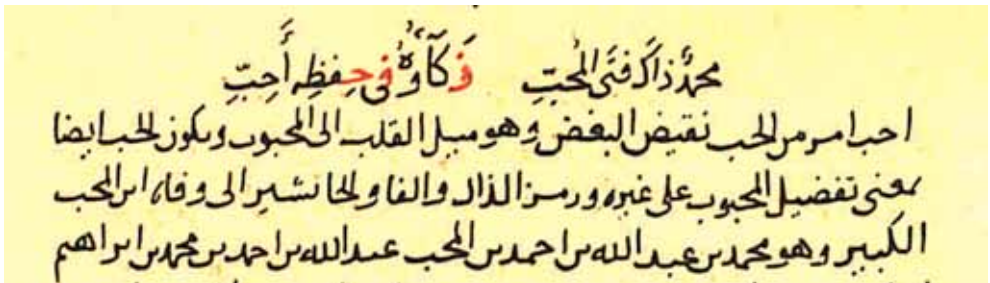 محمد ذاك فتى المحب فذكاؤه في حفظه أحب
احب امر من الحب نقيض البغض وهو ميل القلب الى المحبوب ويكون الحب ايضا
بمعنى تفضيل المحبوب على غيره ورمز الذال والفا والحا تشير الى وفاه ابن المحب
الكبير وهو محمد بن عبد الله بن احمد بن المحب عبد الله بن احمد بن محمد بن ابراهيم